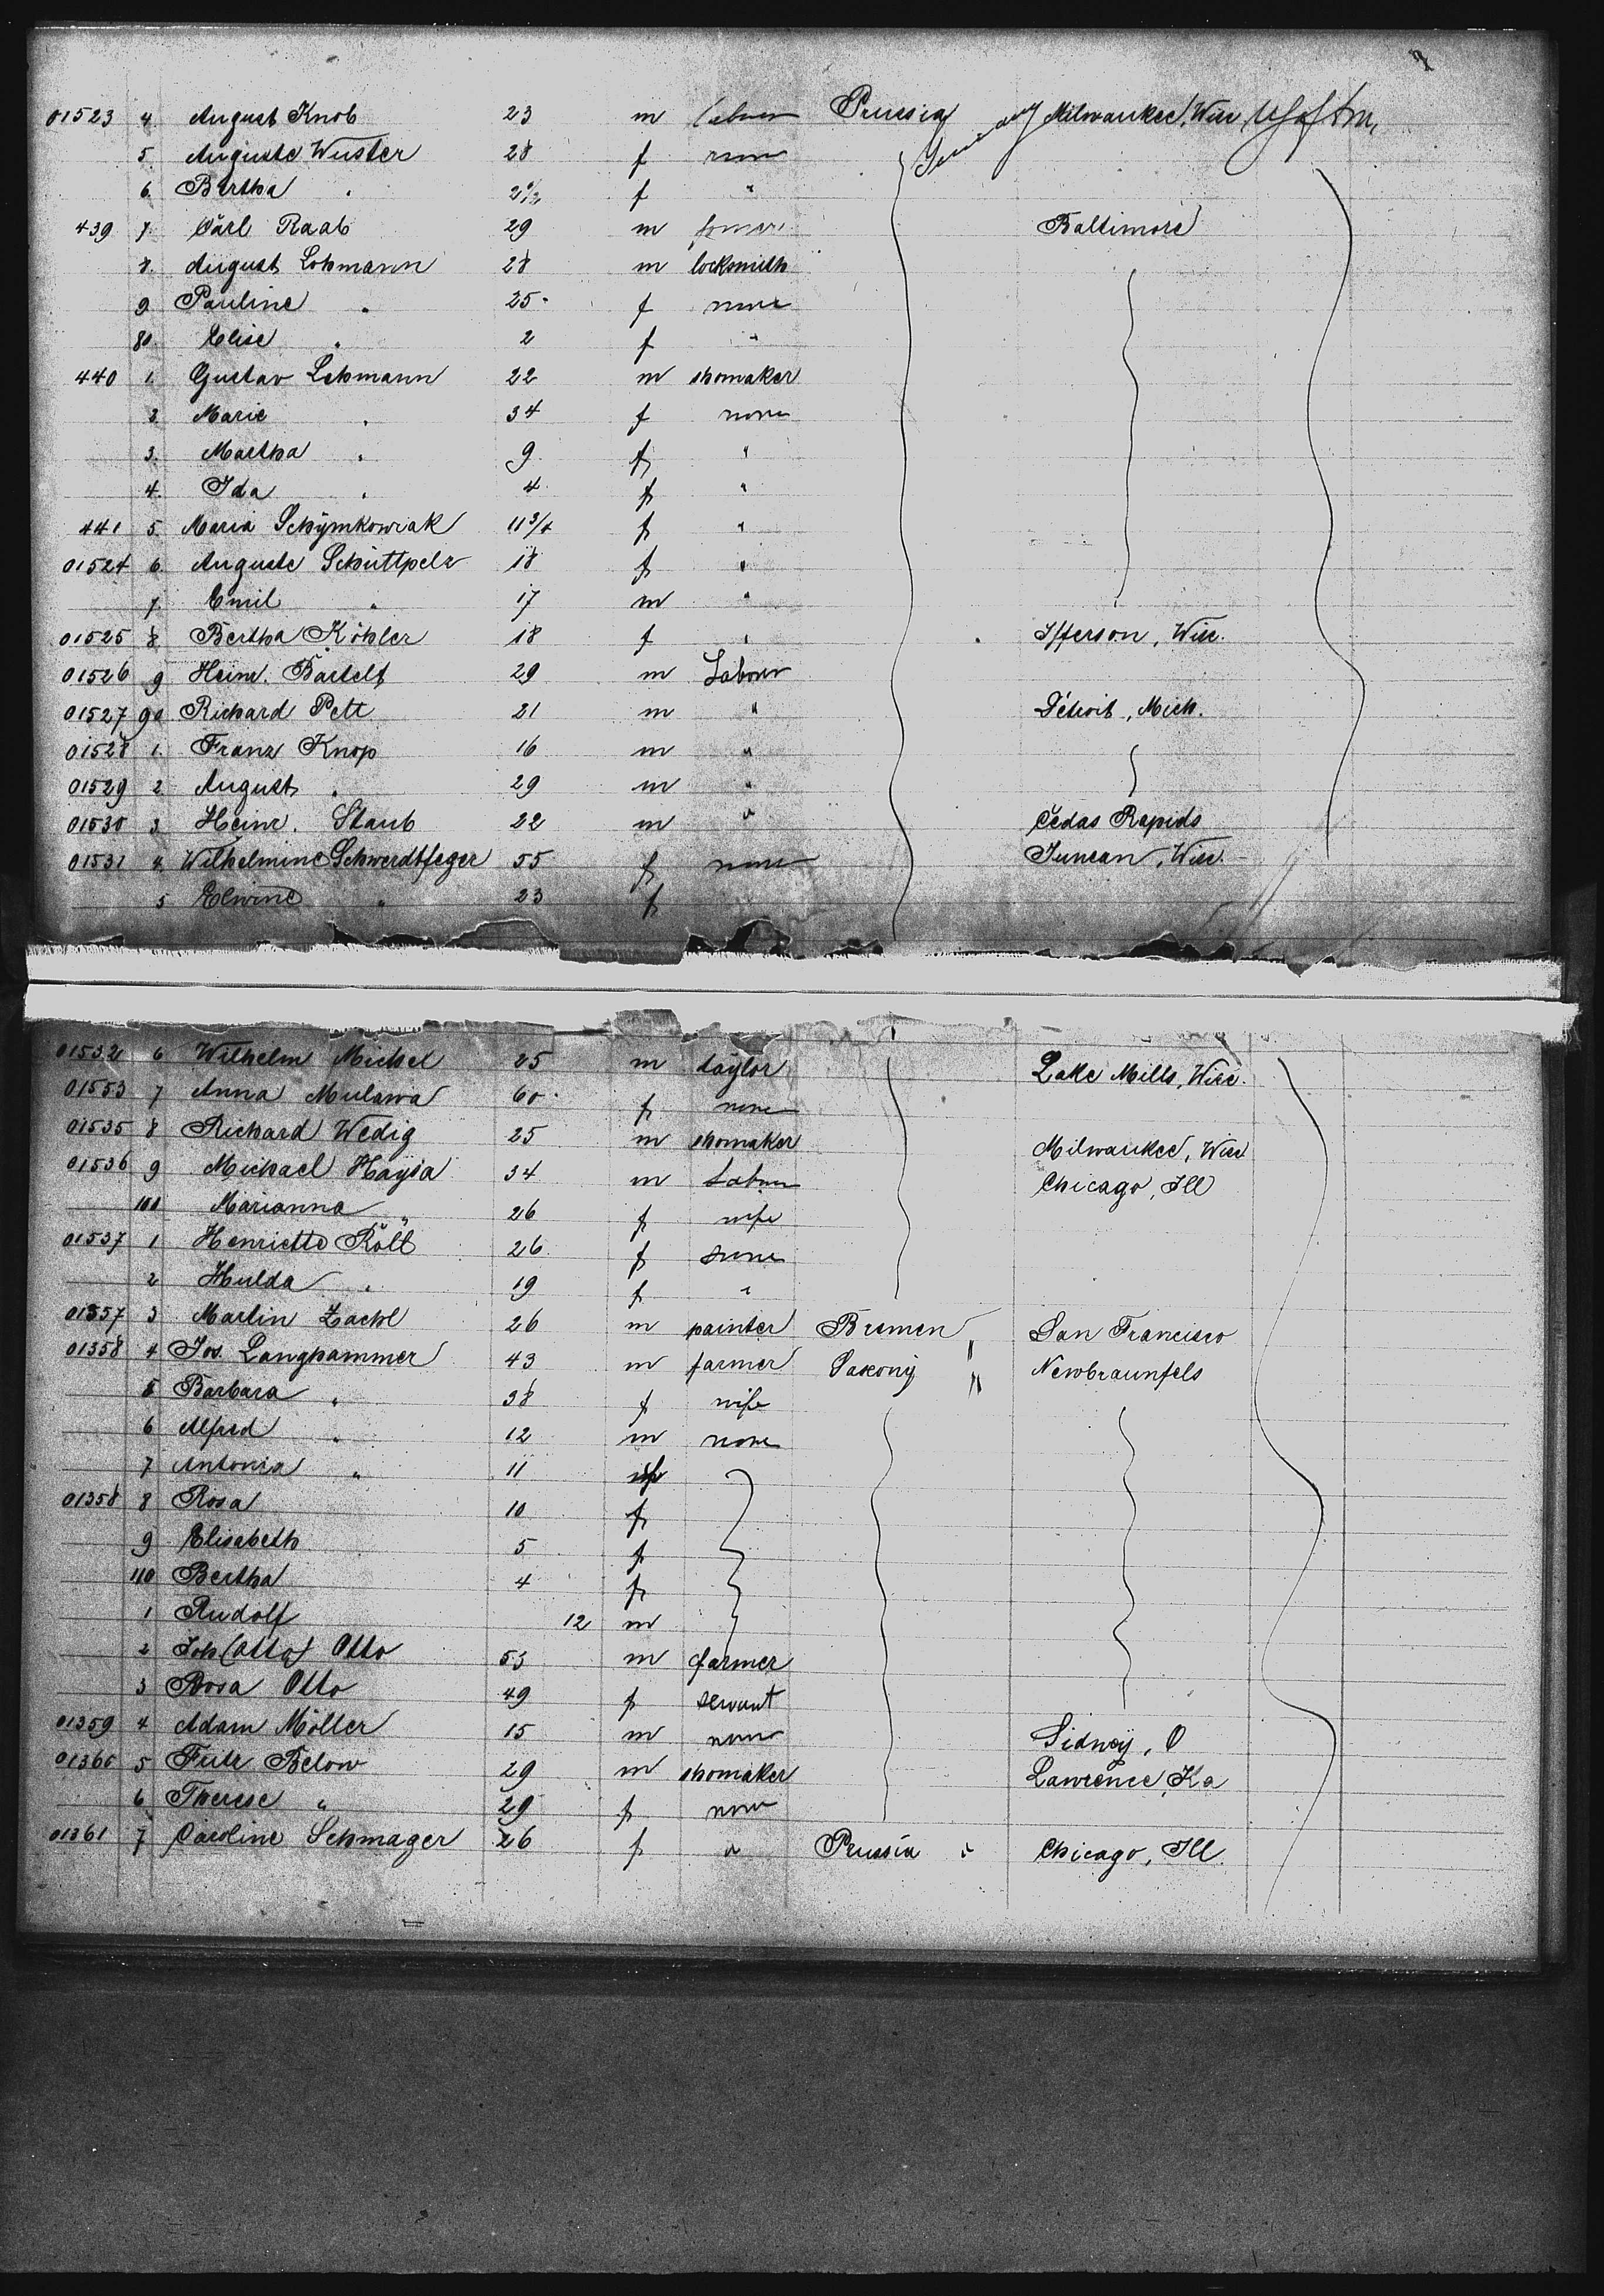 01523 4. August Knob 23 m Prussia Germany Milwaukee, Wisc U S of Am,
5. Auguste Wuster 28 f none
6. Bertha " f "
439 7. Carl Raab 29 m Baltimore
8. August Lohmann 28 m locksmith
9 Pauline " 25 f none
80. Elise " 2 f "
440 1. Gustav Lehmann 22 m shomaker
2. Marie " 34 f none
3. Martha " 9 f "
4. Ida " 4 f "
441 5. Maria Schymkowiak 11 3/4 f "
01524 6. Auguste Schuttpelz 18 f "
7. Emil " 17 m "
01525 8. Bertha Köhler 18 f " Jfferson, Wisc.
01526 9 Heinr. Bartelt 29 m Labour
01527 90 Richard Pett 21 m " Detroit, Mich.
01528 1. Franz Knop 16 m "
01529 2 August " 29 m "
01530 3. Heinr. Staub 22 m " Cedas Rapids
01531 4. Wilhelmine Schwerdtfeger 55 f none Juncan, Wisc.
5 Elwine " 23 f
01532 6 Wilhelm Michel 25 m taylor Lake Mills, Wisc.
01553 7 Anna Mulawa 60 f none
01535 8 Richard Wedig 25 m shomaker Milwaukee, Wisc
01536 9 Michael Haysa 34 m Labour Chicago, Ill
100 Marianna " 26 f wife
01537 1 Henriette Költ 26 f none
2 Hulda " 19 f "
01357 3 Martin Zachl 26 m painter Bremen " San Francisco
01358 4 Jos. Langhammer 43 m farmer Saxony " Newbraunfels
5 Barbara " 38 f wife
6 Alfred " 12 m none
7 Antonia " 11 f
01358 8 Rosa 10 f
9 Elisabeth 5 f
110 Bertha 4 f
1 Rudolf 12 m
2 Joh (Otto) Otto 53 m farmer
3 Rosa Otto 49 f servant
01359 4 Adam Möller 15 m none Sidney, O
01360 5 Fritz Below 29 m shomaker Lawrence, Ka
6 Therese " 29 f none
01361 7 Caroline Schmager 26 f " Prussia " Chicago, Ill.